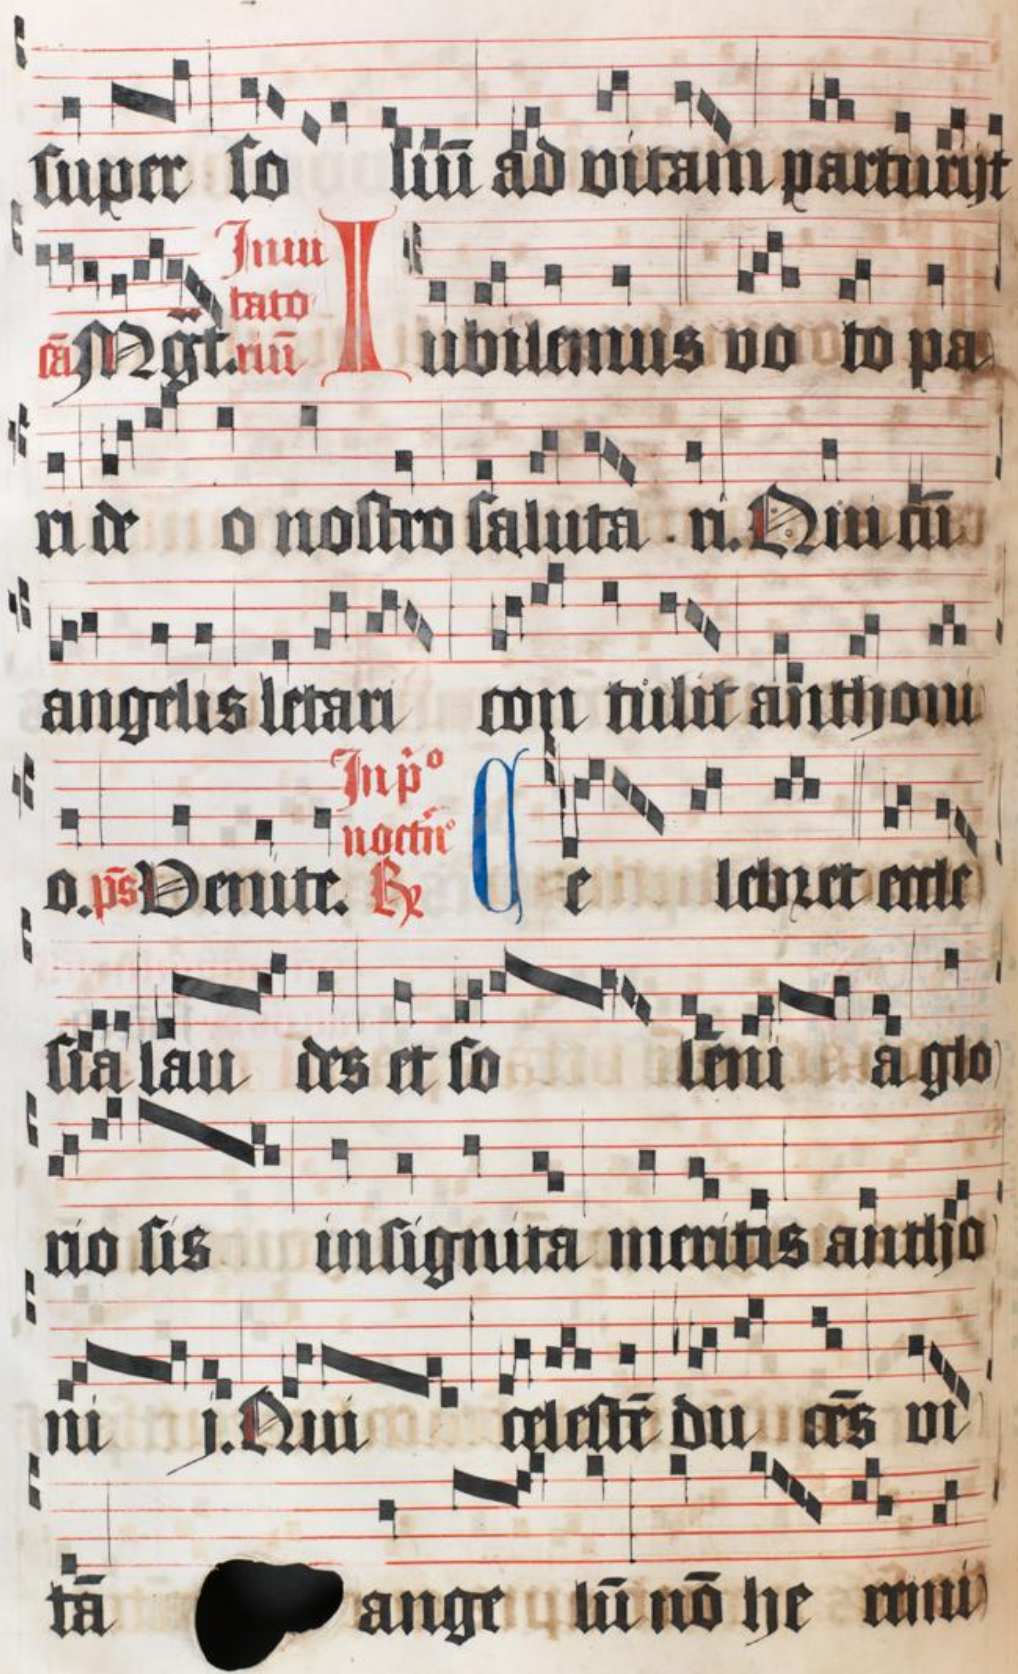 super so liū ad vitam parturijt
Inui
tato
cā Mgt. riū Iubilemus vo to pa
ri de o nostro saluta ri. Qui cū
angelis letari con tulit anthoni
In p͛o
noctū
o. p̄s Venite. ℟ Ce lebret eccle
sia lau des et so lēni a glo
rio sis insignita meritis antho
ni j. Qui celestē du cēs vi
tā ange lū nō he remi